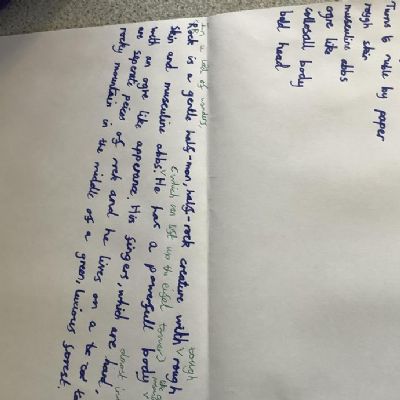 Turns to rubble by paper
rough skin
musculine abbs
ogre like
collosall body
bald head
In a land of wonders,
Rock is a gentle half-man, half-rock creature with rough
tough
skin and musculine abbs. He has a powerfull body
(which can lift up the eifel tower)
with an ogre like apperance. His fingers, which are hard,
almost
are seperate peices of rock and he lives on a
rocky mountain in the middle of a green, luxious forrest.